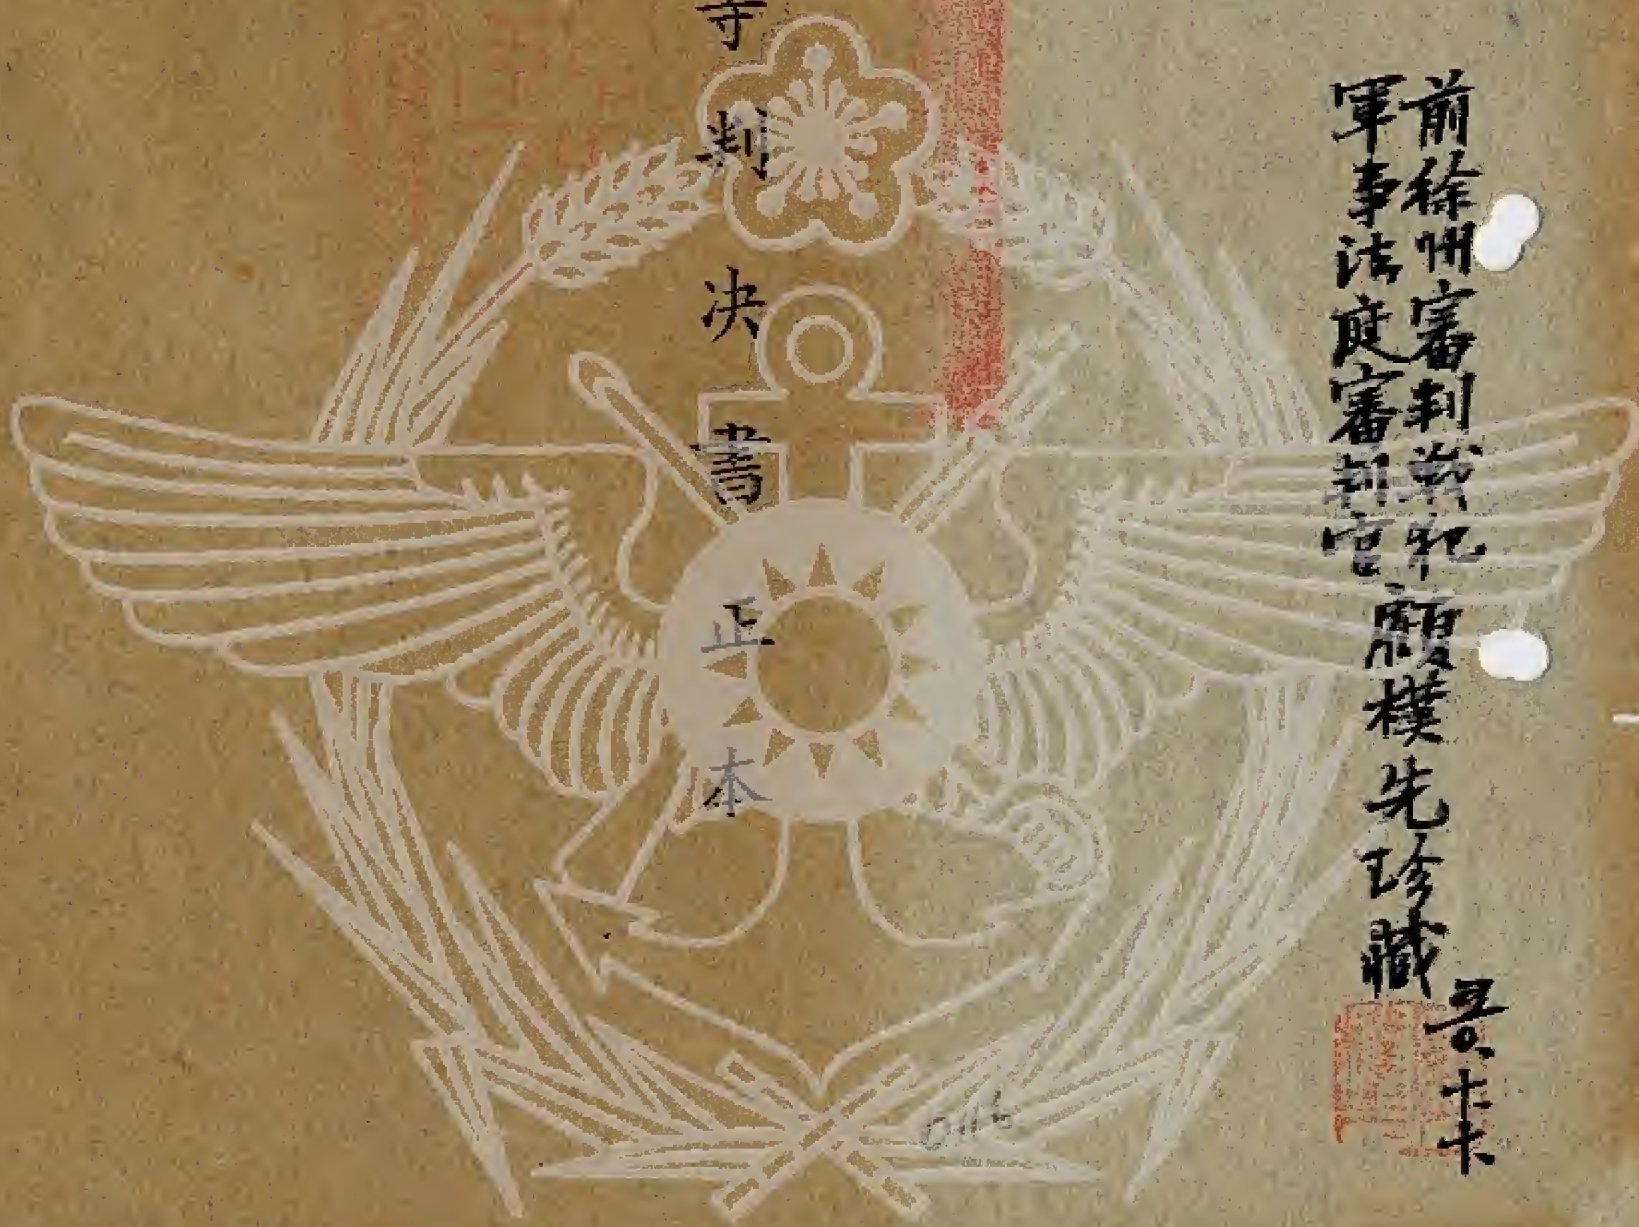 前徐州審判戰犯
軍事法庭審判官顧樸先珍藏
等判決書正本
0116